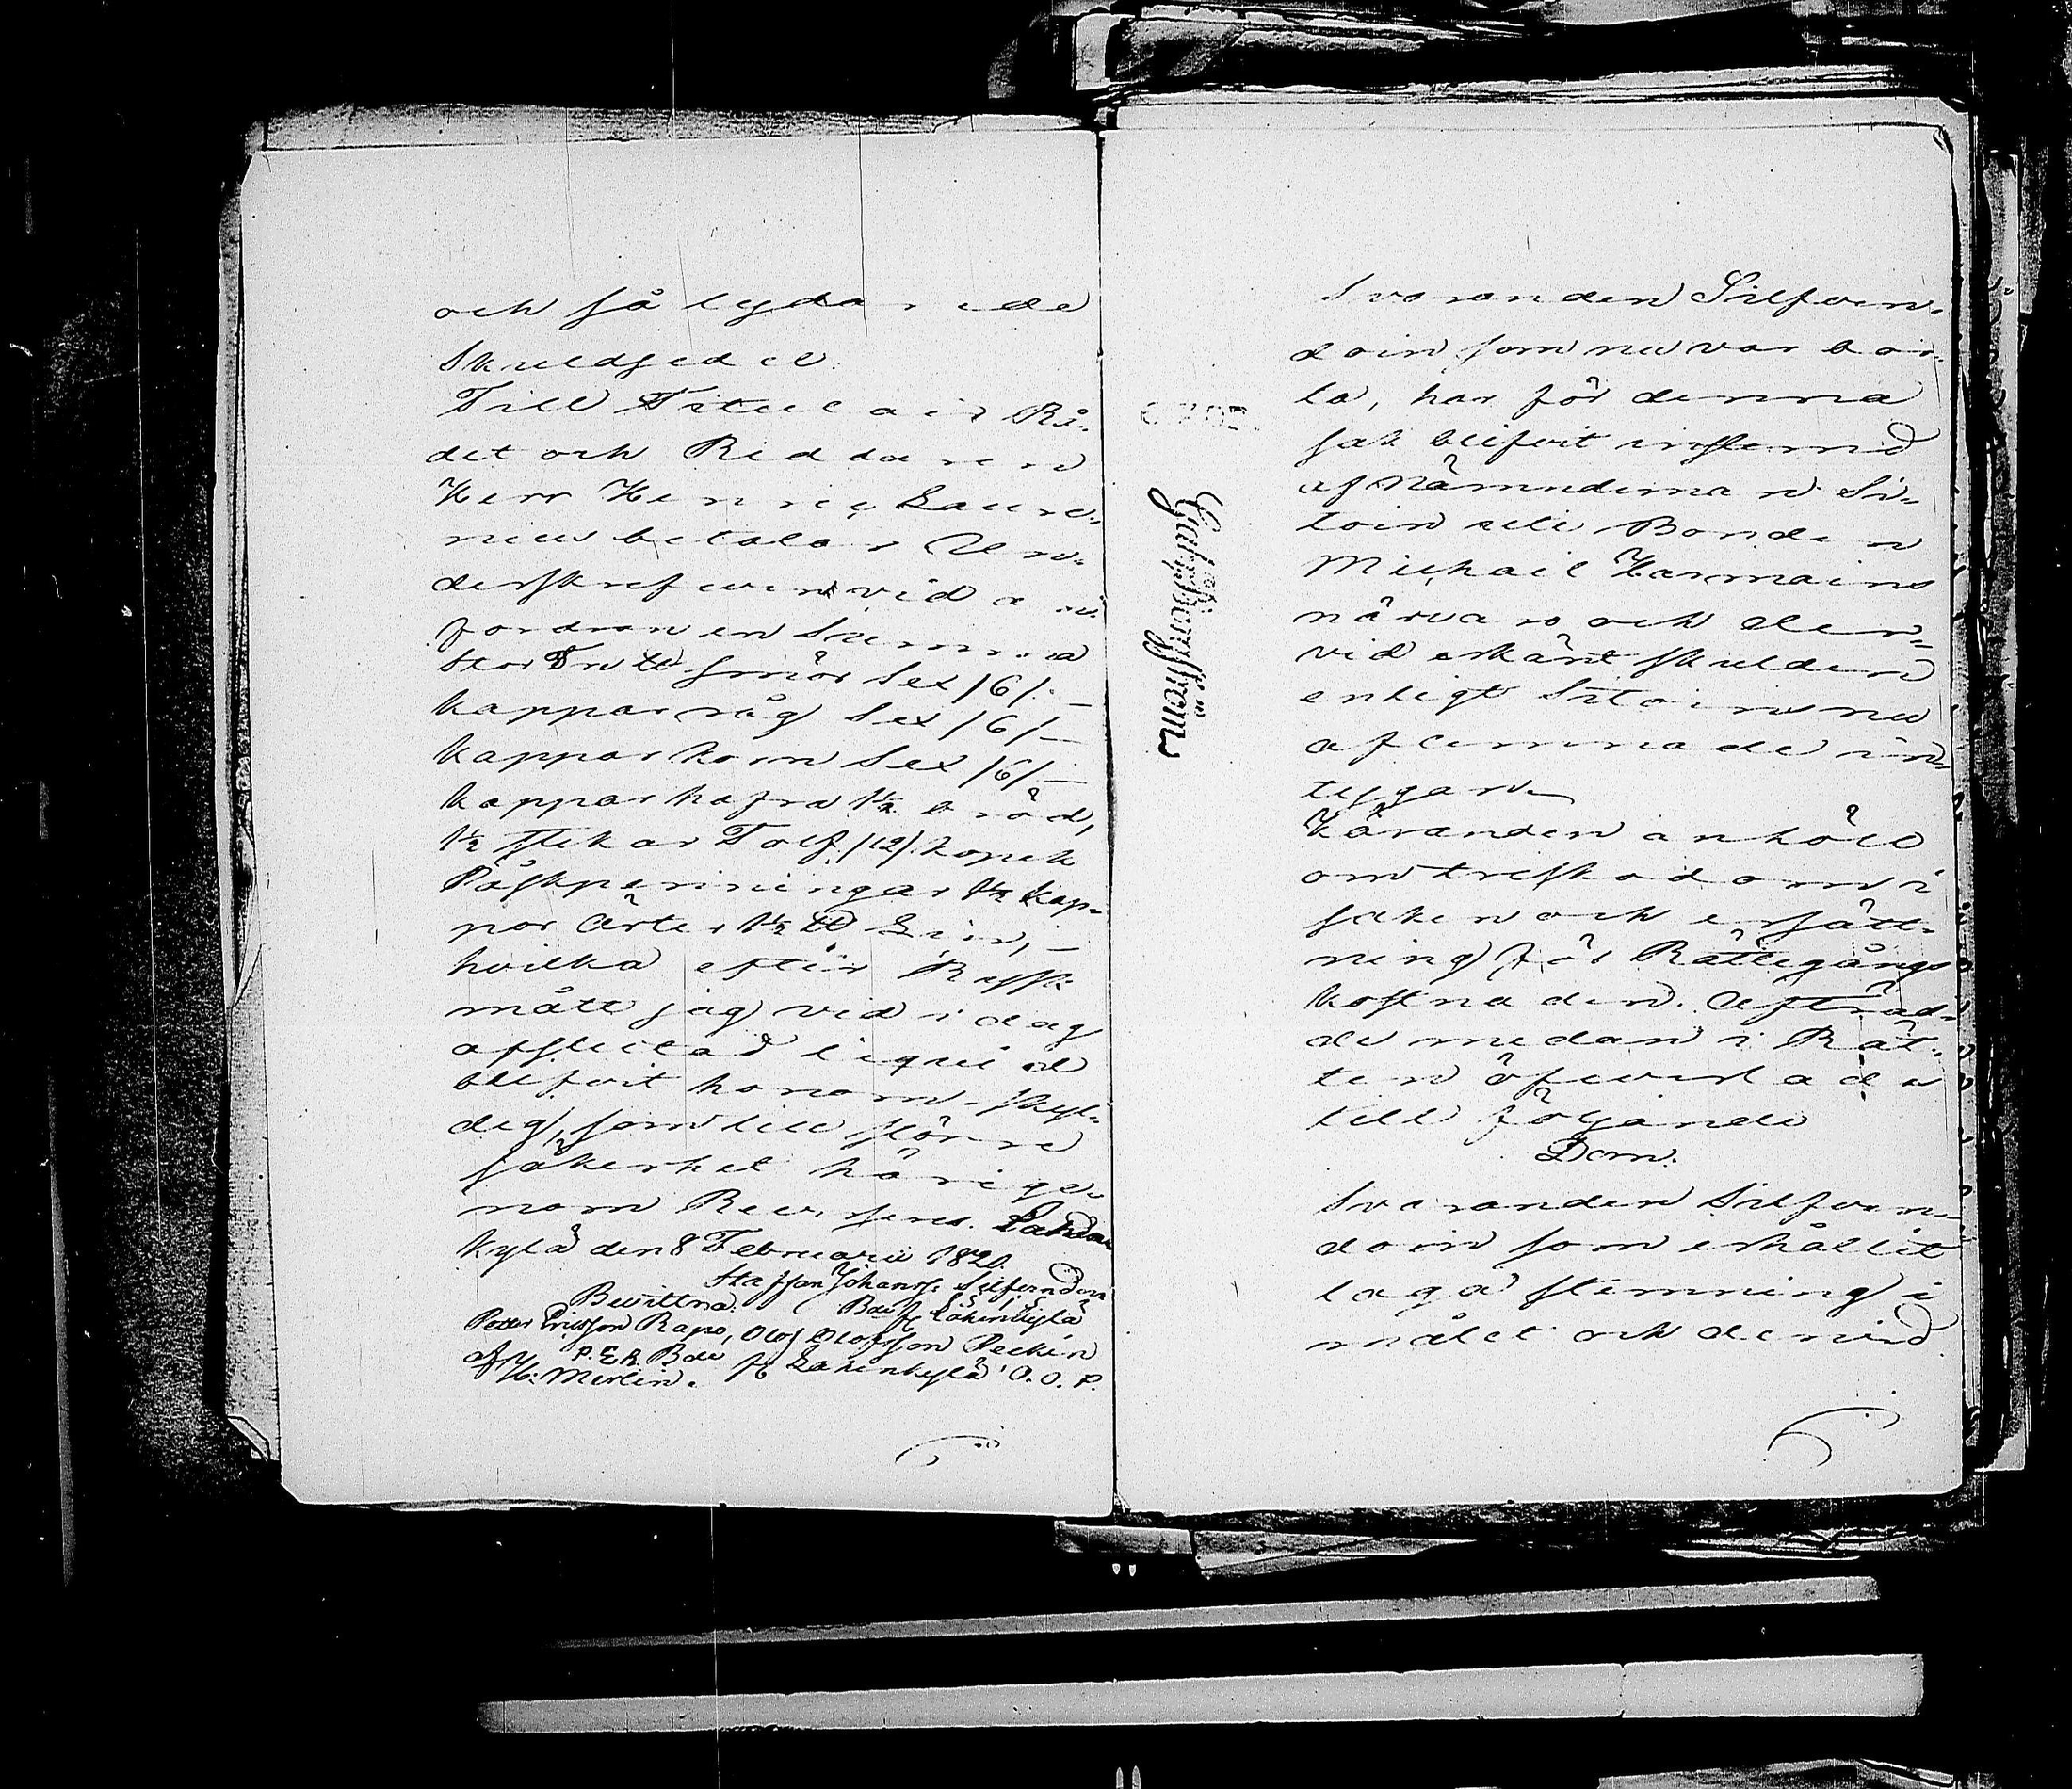 och så lydande
Skuldsedel:
Till Titulair Rå-
det och Riddaren
Herr Henric Laure-
nius betalar Un-
derskrefven vid an-
fordran en Summa
stor Tre ℔ smör Sex /6/. —
kappar råg Sex /6/ —
kappar korn Sex /6/ —
kappar hafra 1½ bröd,
1½ stekar Tolf /12/ kopek
Påskpenningar 1½ kap-
par ärter 1½ ℔ Lin, —
hvilka efter
mått jag vid i dag
afslutad liquid
blifvit honom skyl-
dig, som till större
säkerhet härige-
nom Reverseras. Lahden
kylä den 8 Februarii 1820.
Staffan Johansson Silfvendoin
Bewittna. Bde fr Lahenkylä
Petter Ericsson Rapo, Olof Olofsson Peckin
P. E. R. Bde fr Lahenkylä O. O. P.
af H: Merlin.
Svaranden Silfven-
doin som nu var bor-
ta, har för denna
sak blifvit instemd
af Nämndeman Si-
toin uti Bonden
Michail Karmains
närvaro och der-
vid erkänt skulden
enligt Sitoins nu
aflemnade in-
tygan.
Käranden anhöll
om treskodom i
saken och ersätt-
ning för Rättegångs
kostnaden. Afträd-
de medan i Rät-
ten öfverlades
till följande
Dom.
Svaranden Silfven-
doin som erhållit
laga stemning i
målet och dervid